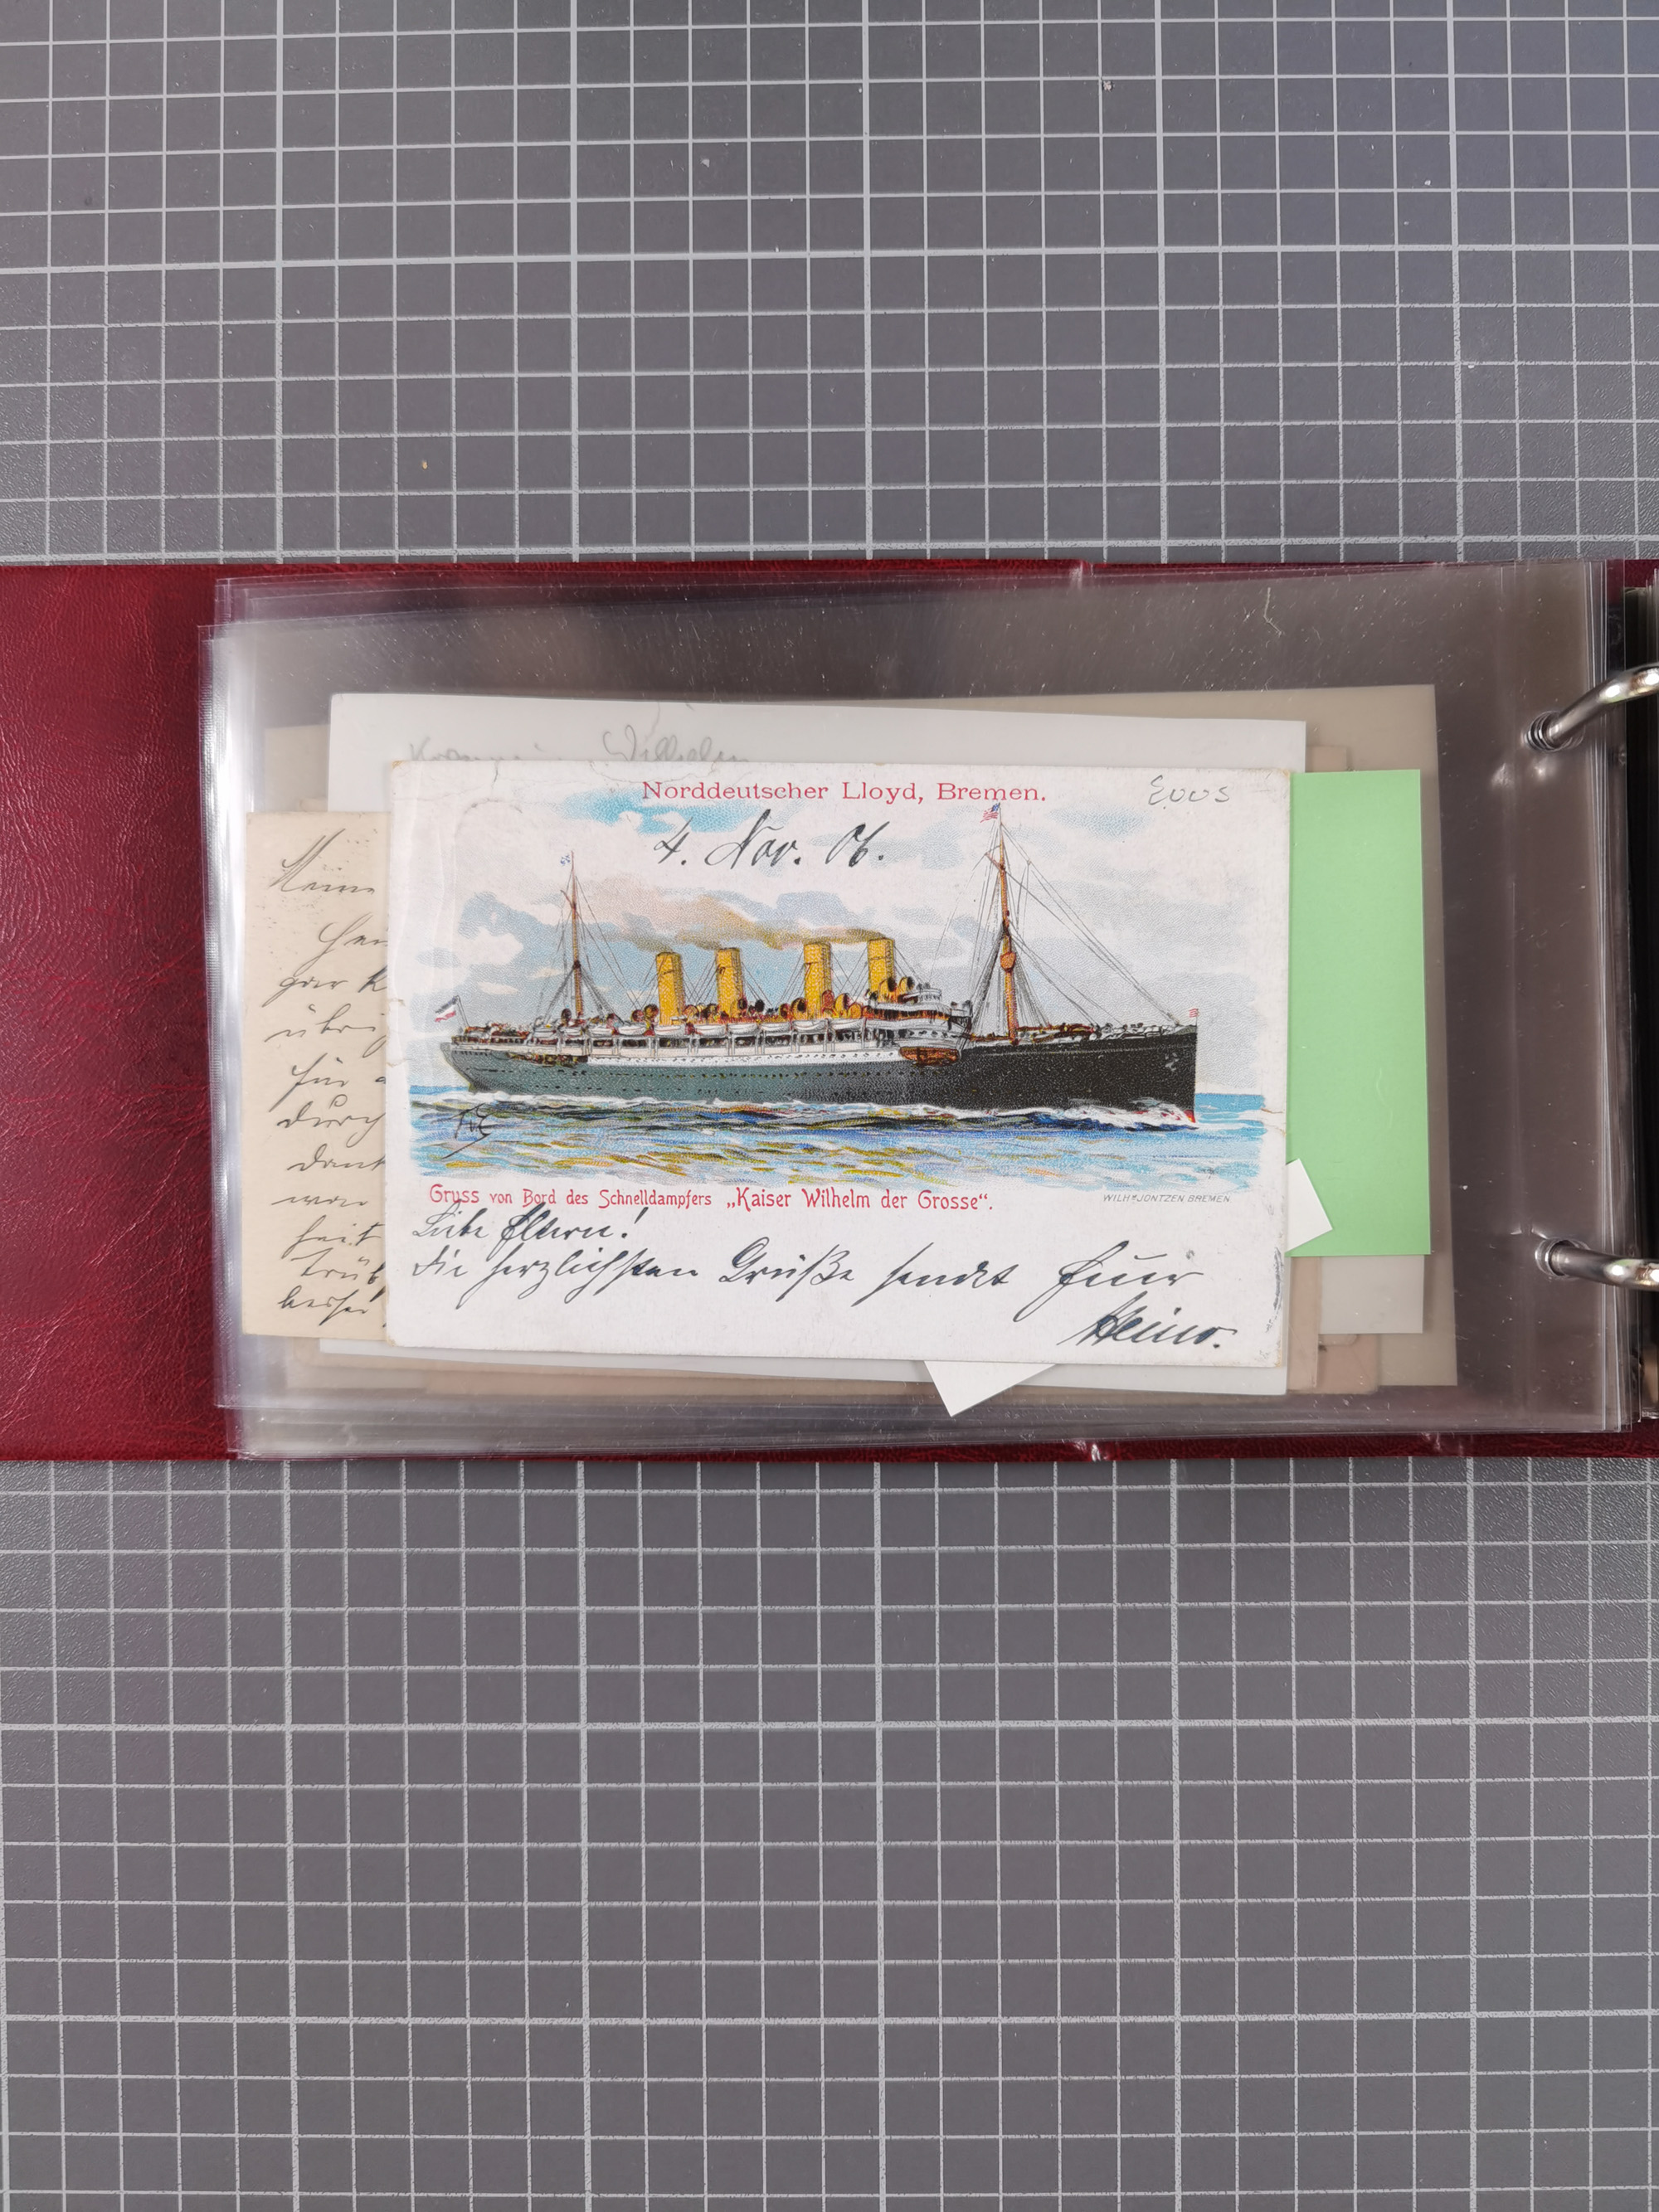 Wilhelm
Norddeutscher Lloyd, Bremen.
4. Nov. 06.
Gruss von Bord des Schnelldampfers „Kaiser Wilhelm der Grosse“.
WILH. JÖNTZEN, BREMEN
Liebe Eltern!
Die herzlichsten Grüße sendet Euer
Heino.
Meine
gar
übrig
für
durch
dank
war
heit
trüb